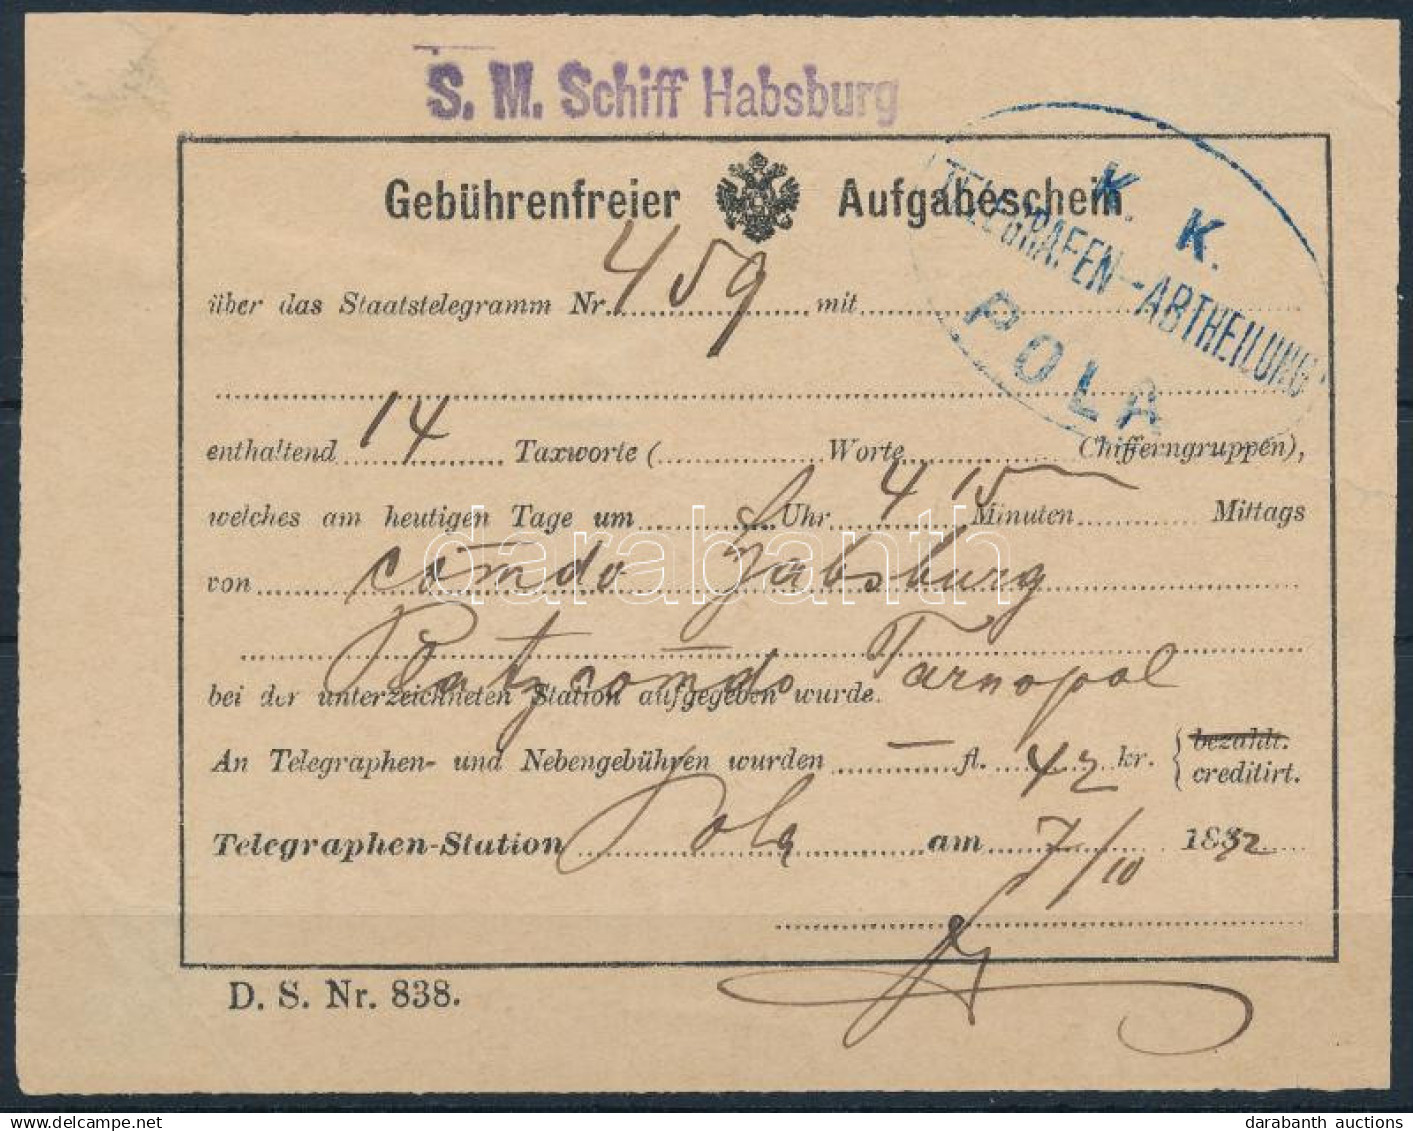 S. M. Schiff Habsburg
Gebührenfreier Aufgabeschein
K. K.
TELEGRAFEN-ABTHEILUNG
POLA
über das Staatstelegramm Nr. 459 mit
enthaltend 14 Taxworte ( Worte Chifferngruppen),
welches am heutigen Tage um Uhr 4 15 Minuten Mittags
von Comdo Habsburg
Platzcomdo Tarnopol
bei der unterzeichneten Station aufgegeben wurde.
An Telegraphen- und Nebengebühren wurden — fl. 42 kr. { bezahlt. creditirt.
Telegraphen-Station Pola am 7/10 1882
D. S. Nr. 838.
darabanth
darabanth auctions